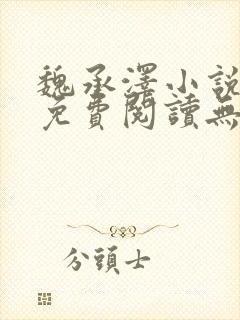 魏承澤小說
免費閱讀無
分頭士